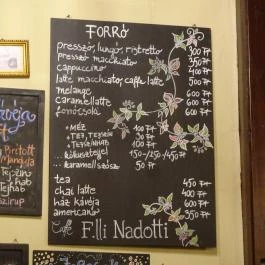 FORRÓ
presszó, lungó, ristretto 300 Ft
presszó macchiato 350 Ft
cappuccino 400 Ft
latte macchiato, caffe latte 500 Ft
melange 600 Ft
caramellatte 600 Ft
forrócsoki 600 Ft
• MÉZ 100 Ft
• TEJ, TEJSZÍN 50 Ft
• TEJSZÍNHAB 100 Ft
...kókusztejjel 150-/250-/450 Ft
... karamellszósz 50 Ft
tea 450 Ft
chai latte 600 Ft
ház kávéja 400 Ft
americano 350 Ft
Café F.lli Nadotti
Pirított
Mandula
Tejszín
hab
Tejhab
szirup